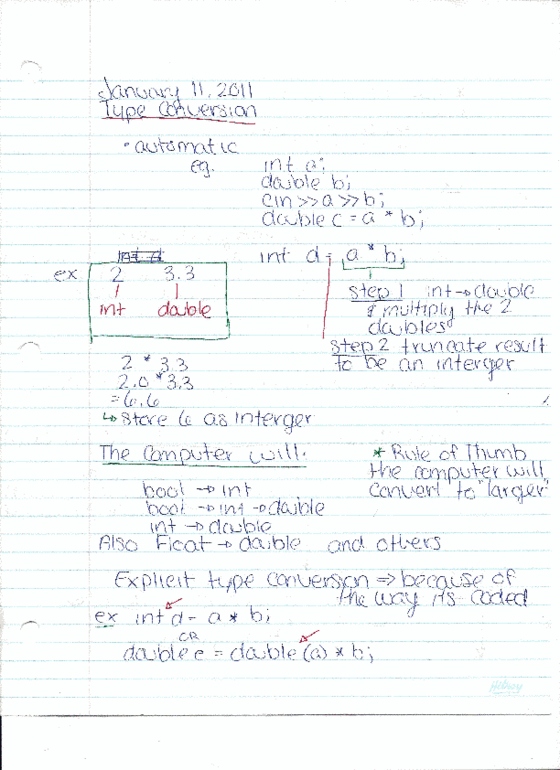 January 11, 2011
Type Conversion
• automatic
eg. int a;
double b;
cin >> a >> b;
double c = a * b;
int d = a * b;
ex 2 3.3
int double
step 1 int → double
& multiply the 2
doubles
step 2 truncate result
to be an interger
2 * 3.3
2.0 * 3.3
= 6.6
↳ store 6 as interger
The Computer will:
* Rule of Thumb
the computer will
convert to "larger"
bool → int
bool → int → double
int → double
Also Float → double and others
Explicit type conversion ⇒ because of
the way its coded
ex int d = a * b;
OR
double e = double (a) * b;
Hilroy